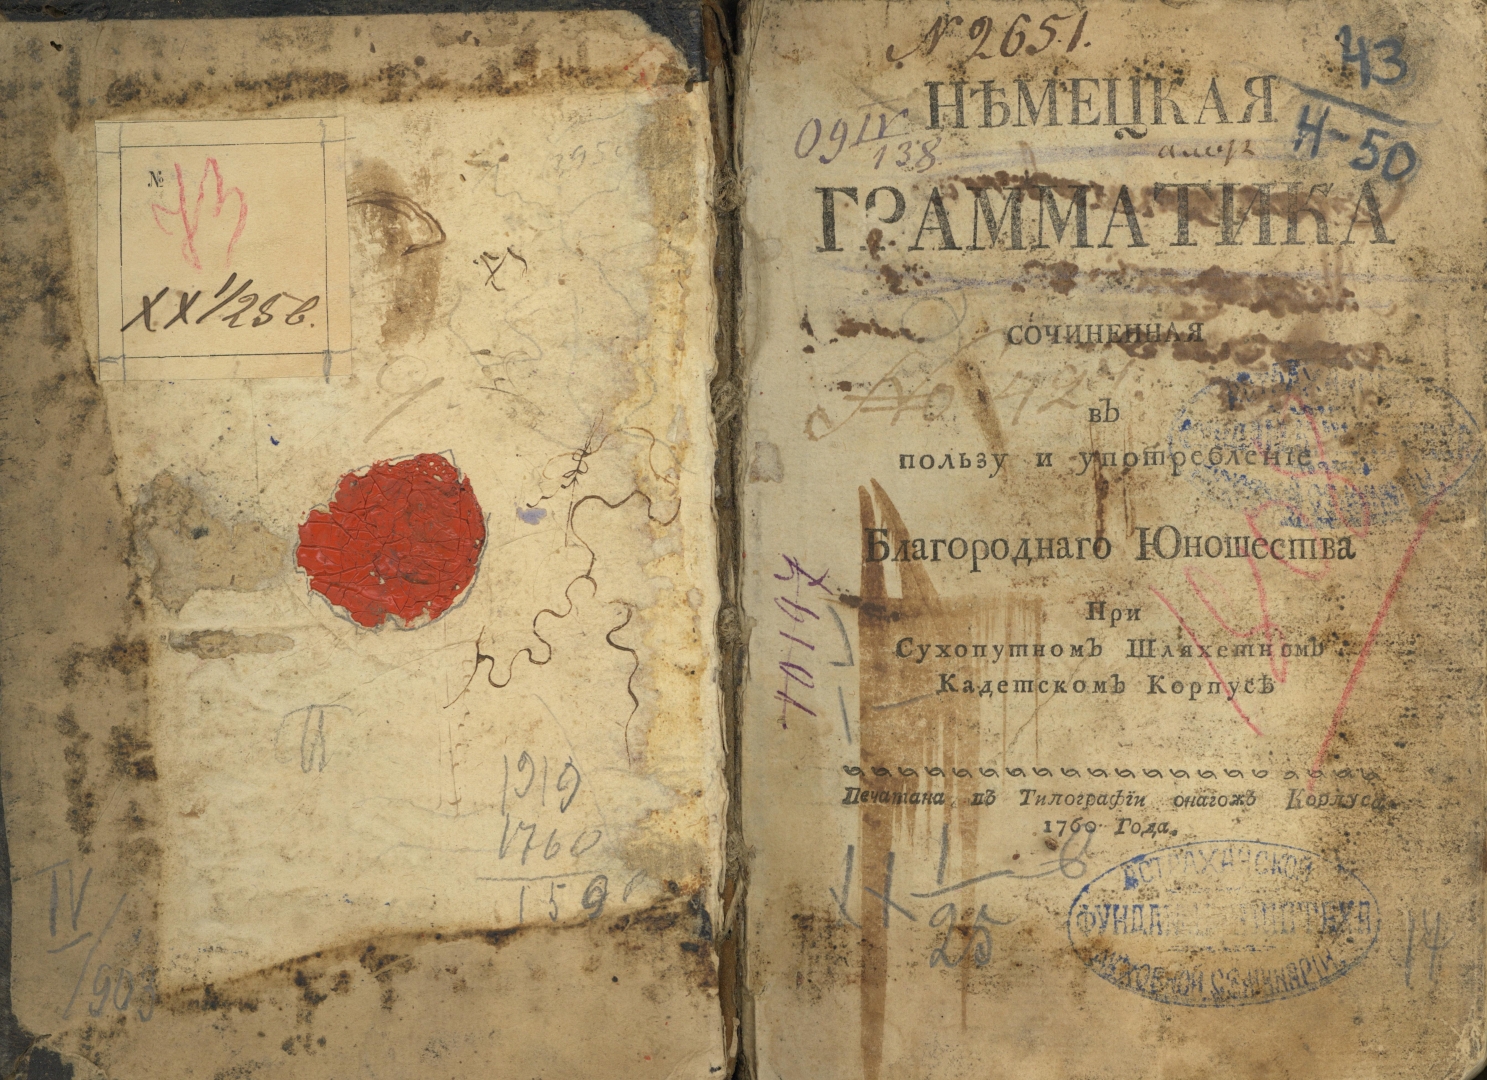 № 43
XX 1/25 б.
1919
1760
159
IV
1903
№ 2651.
43
Н-50
09 IV
138
НѢМЕЦКАЯ
ГРАММАТИКА
СОЧИНЕННАЯ
въ
пользу и употребленіе
Благороднаго Юношества
При
Сухопутномъ Шляхетномъ
Кадетскомъ Корпусѣ
Печатана въ Типографіи онагожъ Корпуса
1760 Года.
XX 1/25 б
АСТРАХАНСКОЙ
ФУНДАМ. БИБЛІОТЕКА
ДУХОВНОЙ СЕМИНАРІИ
14